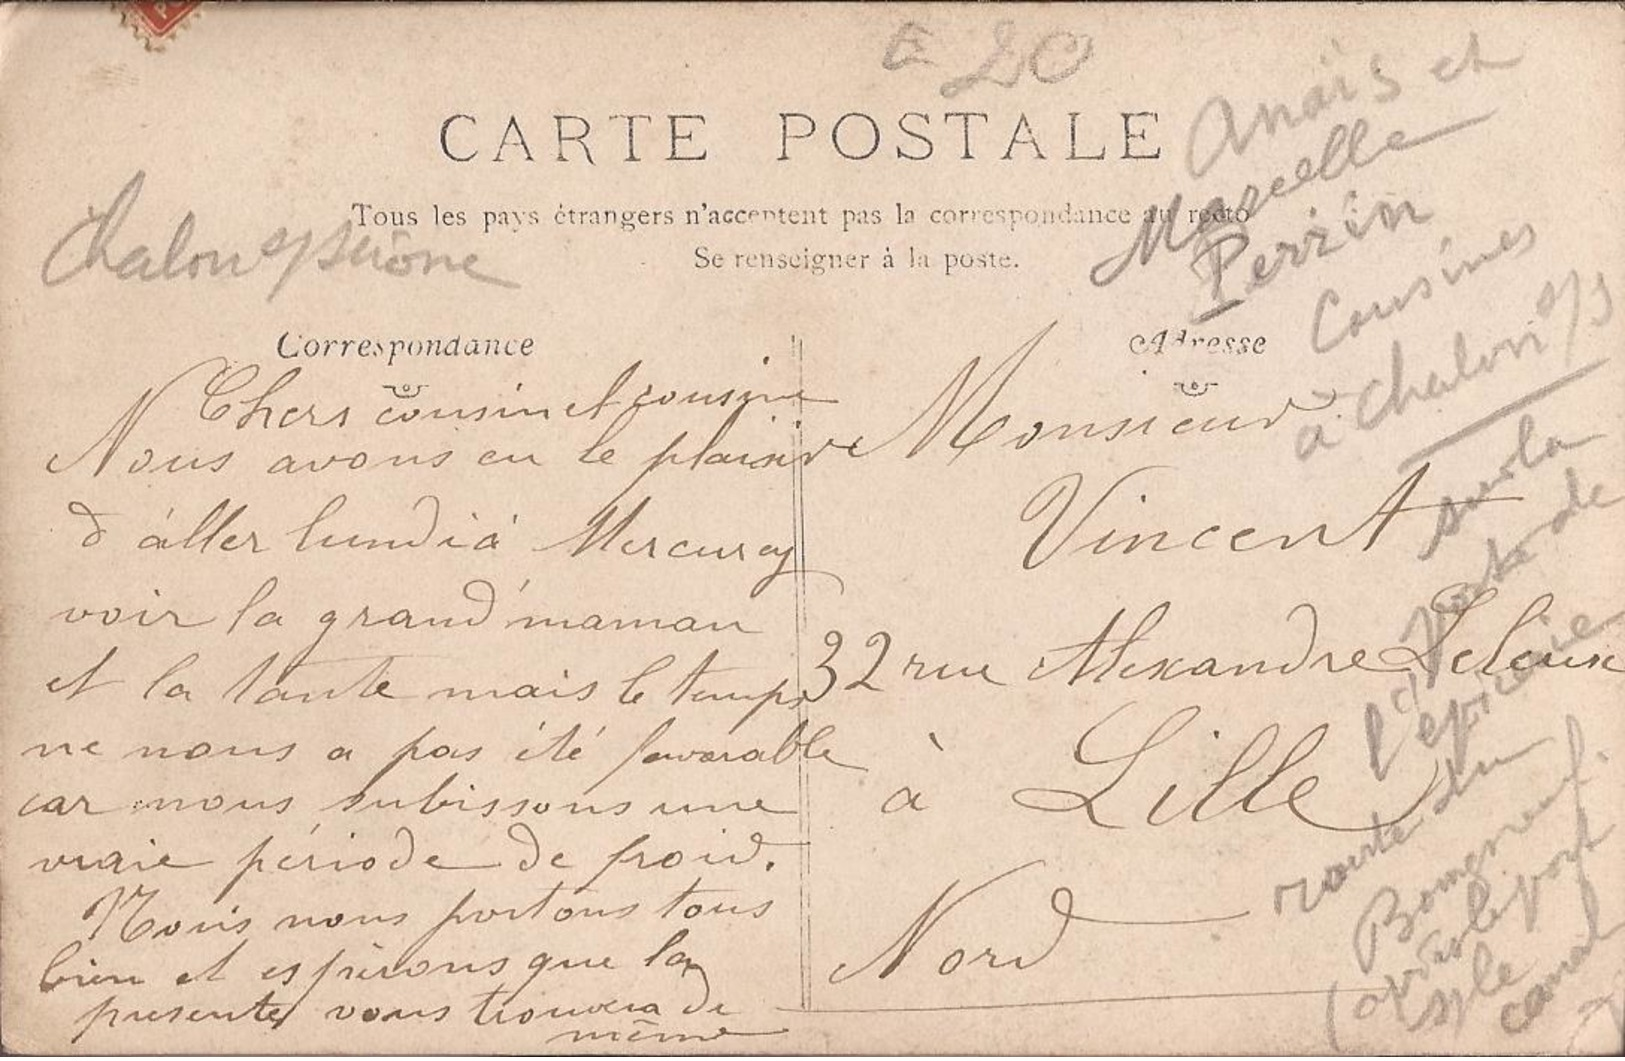 E 20
CARTE POSTALE
Tous les pays étrangers n'acceptent pas la correspondance au recto
Se renseigner à la poste.
Chalon s/ saône
Correspondance
Chers cousin et cousine
Nous avons eu le plaisir
d'áller lundi á Mercurey
voir la grand'maman
et la tante mais le temps
ne nous a pas été favorable
car nous subissons une
vraie période de froid.
Nous nous portons tous
bien et espérons que la
presente vous trouvera de
même
Adresse
Monsieur
Vincent
32 rue Alexandre Leleux
à Lille
Nord
Anaïs et
Marcelle
Perrin
Cousines
à Chalon s/s
sur la
de
l'épicerie
route du
(après le pont
s/ le
canal